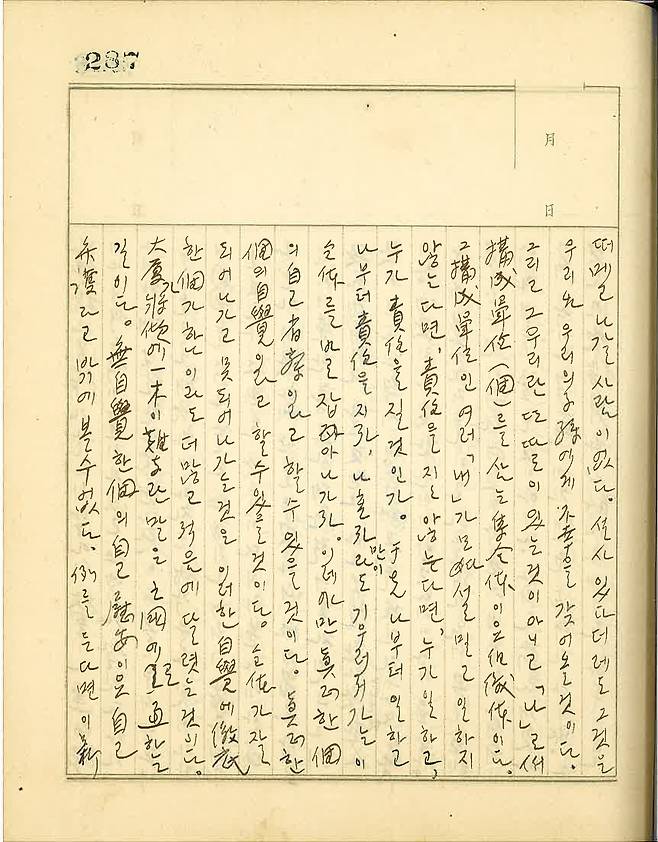 287
月
日
떠메고 나갈 사람이 없다. 설사 있다더래도 그것을
우리와 우리의 子孫에게 不幸을 갖어오는것이다.
그리고 그 우리란 또 따로이 있는것이 아니고 「나」로써
構成單位(個)를 삼는 集合体이요 組織体이다.
그 構成單位인 여러 「내」가 모다 설밀고 일하지
않는다면, 責任을 지는 않는다면, 누가 일하고,
누가 責任을 질것인가. 于先 나부터 일하고
나부터 責任을 지라, 나 혼자만이라도 기우러저가는 이
全体를 바로 잡아나가라. 이데아만 眞正한 個
의 自己省察이라고 할수있을것이다. 眞正한
個의 自覺이라고 할수있을것이다. 全体가 잘
되어나가고 못되어나가는것은 이러한 自覺에 徹底
한 個가 하나이라도 더 많고 적음에 달렸는것이다.
大廈가 將傾에 一木이 難支란 말은 亡國에로 通하는
길이다. 無自覺한 個의 自己慰安이요 自己
弁護라고 밖에 볼수 없다. 例를 든다면 이 新